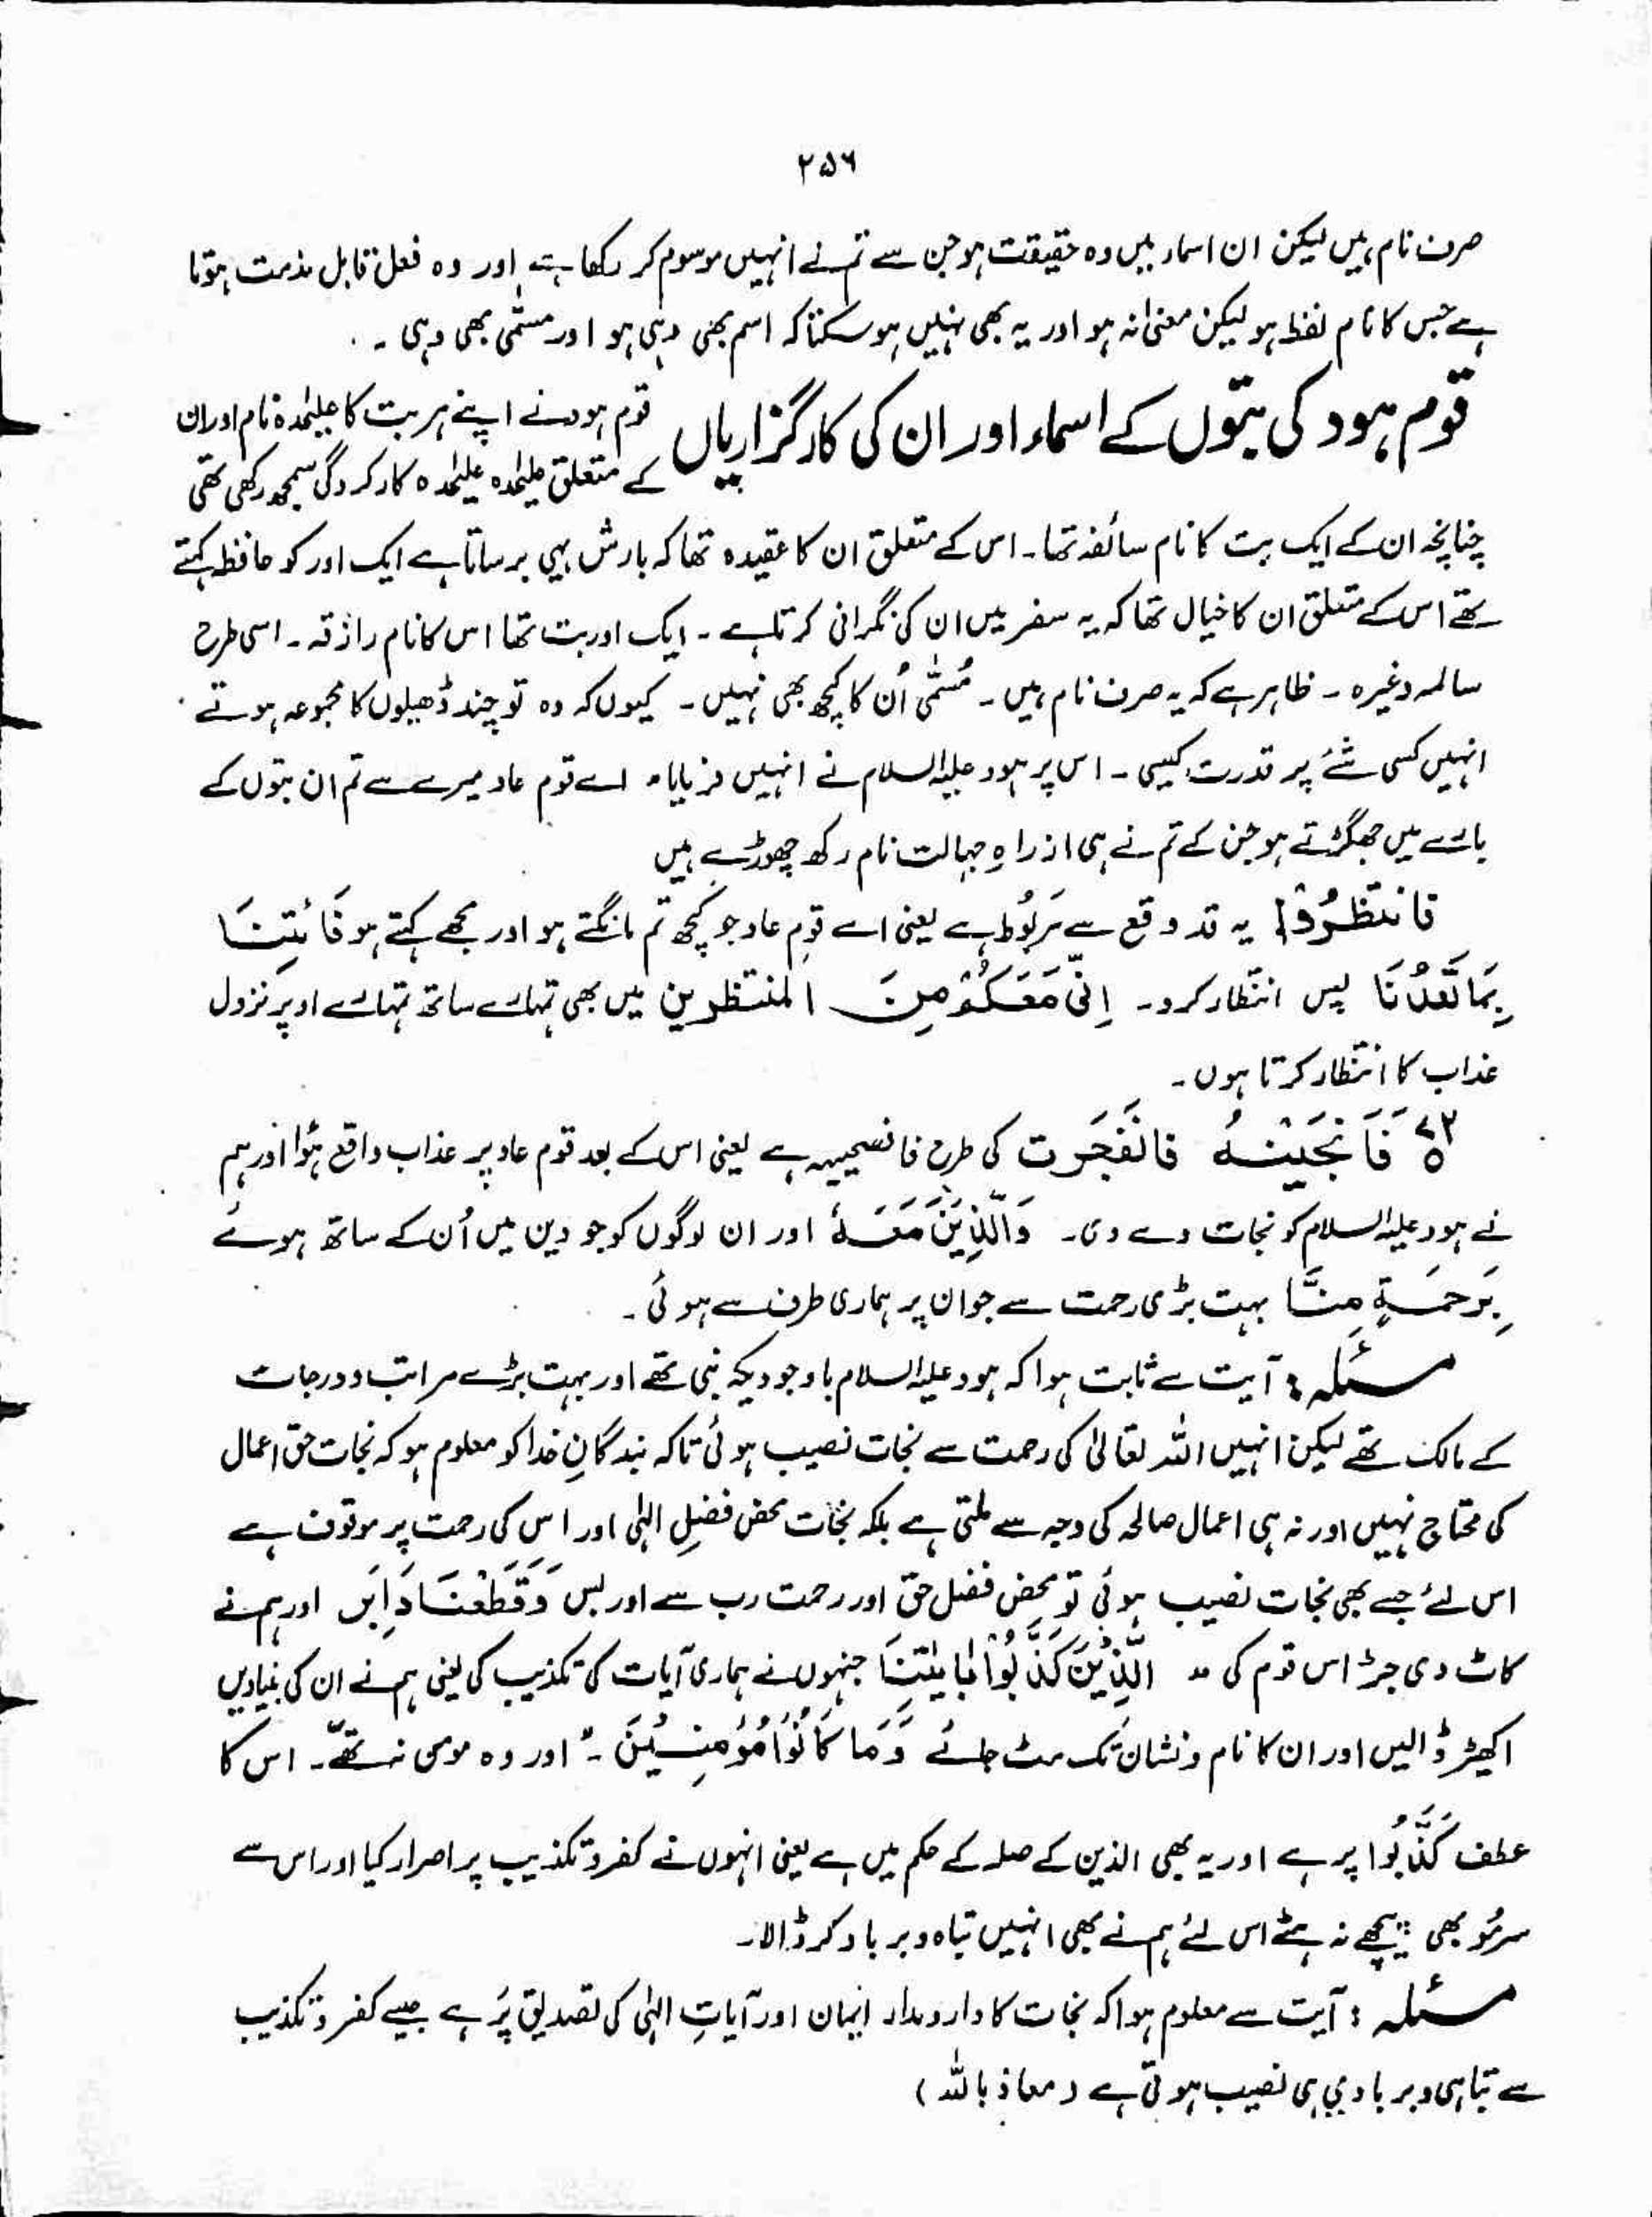 ۲۵۶
صرف نام ہیں لیکن ان اسماء میں وہ حقیقت ہو جن سے تم نے انہیں موسوم کر رکھا ہے اور وہ فعل قابل مذمت ہوتا
ہے جس کا نام لفظ ہو لیکن معنیٰ نہ ہو اور یہ بھی نہیں ہو سکتا کہ اسم بھی وہی ہو اور مسمّٰی بھی وہی ۔
قوم ہود کی بتوں کے اسماء اور ان کی کارگزاریاں
قوم ہود نے اپنے ہر بت کا علیٰحدہ نام اور ان
کے متعلق علیٰحدہ علیٰحدہ کارکردگی سمجھ رکھی تھی
چنانچہ ان کے ایک بت کا نام سائفہ تھا۔ اس کے متعلق ان کا عقیدہ تھا کہ بارش یہی برساتا ہے ایک اور کو حافظ کہتے
تھے اس کے متعلق ان کا خیال تھا کہ یہ سفر میں ان کی نگرانی کرتا ہے ۔ ایک اور بت تھا اس کا نام رازقہ ۔ اسی طرح
سالمہ وغیرہ ۔ ظاہر ہے کہ یہ صرف نام ہیں ۔ مُسَمّٰی اُن کا کچھ بھی نہیں ۔ کیوں کہ وہ تو چند ڈھیلوں کا مجموعہ ہوتے
انہیں کسی شئے پر قدرت کیسی ۔ اس پر ہود علیہ السلام نے انہیں فرمایا ۔ اے قوم عاد میرے سے تم ان بتوں کے
بارے میں جھگڑتے ہو جن کے تم نے ہی ازراہِ جہالت نام رکھ چھوڑے ہیں
فَانْتَظِرُوْا یہ قد وقع سے مَربُوط ہے یعنی اے قوم عاد جو کچھ تم مانگتے ہو اور مجھے کہتے ہو فَائْتِنَا
بِمَا تَعِدُنَا پس انتظار کرو۔ اِنِّیْ مَعَکُمْ مِنَ المنتظرین میں بھی تمہارے ساتھ تمہارے اوپر نزول
عذاب کا انتظار کرتا ہوں ۔
۷۲ فَاَنْجَیْنٰہُ فانفَجَرت کی طرح فا فصیحیہ ہے یعنی اس کے بعد قوم عاد پر عذاب واقع ہُوا اور ہم
نے ہود علیہ السلام کو نجات دے دی۔ وَالَّذِیْنَ مَعَہٗ اور ان لوگوں کو جو دین میں اُن کے ساتھ ہوئے
بِرَحْمَۃٍ مِنَّا بہت بڑی رحمت سے جو ان پر ہماری طرف سے ہوئی ۔
مسئلہ : آیت سے ثابت ہوا کہ ہود علیہ السلام باوجودیکہ نبی تھے اور بہت بڑے مراتب و درجات
کے مالک تھے لیکن انہیں اللہ تعالیٰ کی رحمت سے نجات نصیب ہوئی تاکہ بندگانِ خدا کو معلوم ہو کہ نجات حق اعمال
کی محتاج نہیں اور نہ ہی اعمال صالحہ کی وجہ سے ملتی ہے بلکہ نجات محض فضلِ الٰہی اور اس کی رحمت پر موقوف ہے
اس لئے جسے بھی نجات نصیب ہوئی تو محض فضل حق اور رحمت رب سے اور بس وَقَطَعْنَا دَابِرَ اور ہم نے
کاٹ دی جڑ اس قوم کی الَّذِیْنَ کَذَّبُوْا بِاٰیٰتِنَا جنہوں نے ہماری آیات کی تکذیب کی یعنی ہم نے ان کی بنیادیں
اکھیڑ ڈالیں اور ان کا نام و نشان تک مٹ جائے وَمَا کَانُوْا مُؤْمِنِیْنَ ۔ اور وہ مومن نہ تھے۔ اس کا
عطف کَذَّبُوا پر ہے اور یہ بھی الذین کے صلہ کے حکم میں ہے یعنی انہوں نے کفر و تکذیب پر اصرار کیا اور اس سے
سرمُو بھی پیچھے نہ ہٹے اس لئے ہم نے بھی انہیں تباہ و برباد کر ڈالا۔
مسئلہ : آیت سے معلوم ہوا کہ نجات کا دار و مدار ایمان اور آیاتِ الٰہی کی تصدیق پر ہے جیسے کفر و تکذیب
سے تباہی و بربادی ہی نصیب ہوتی ہے (معاذ باللہ)